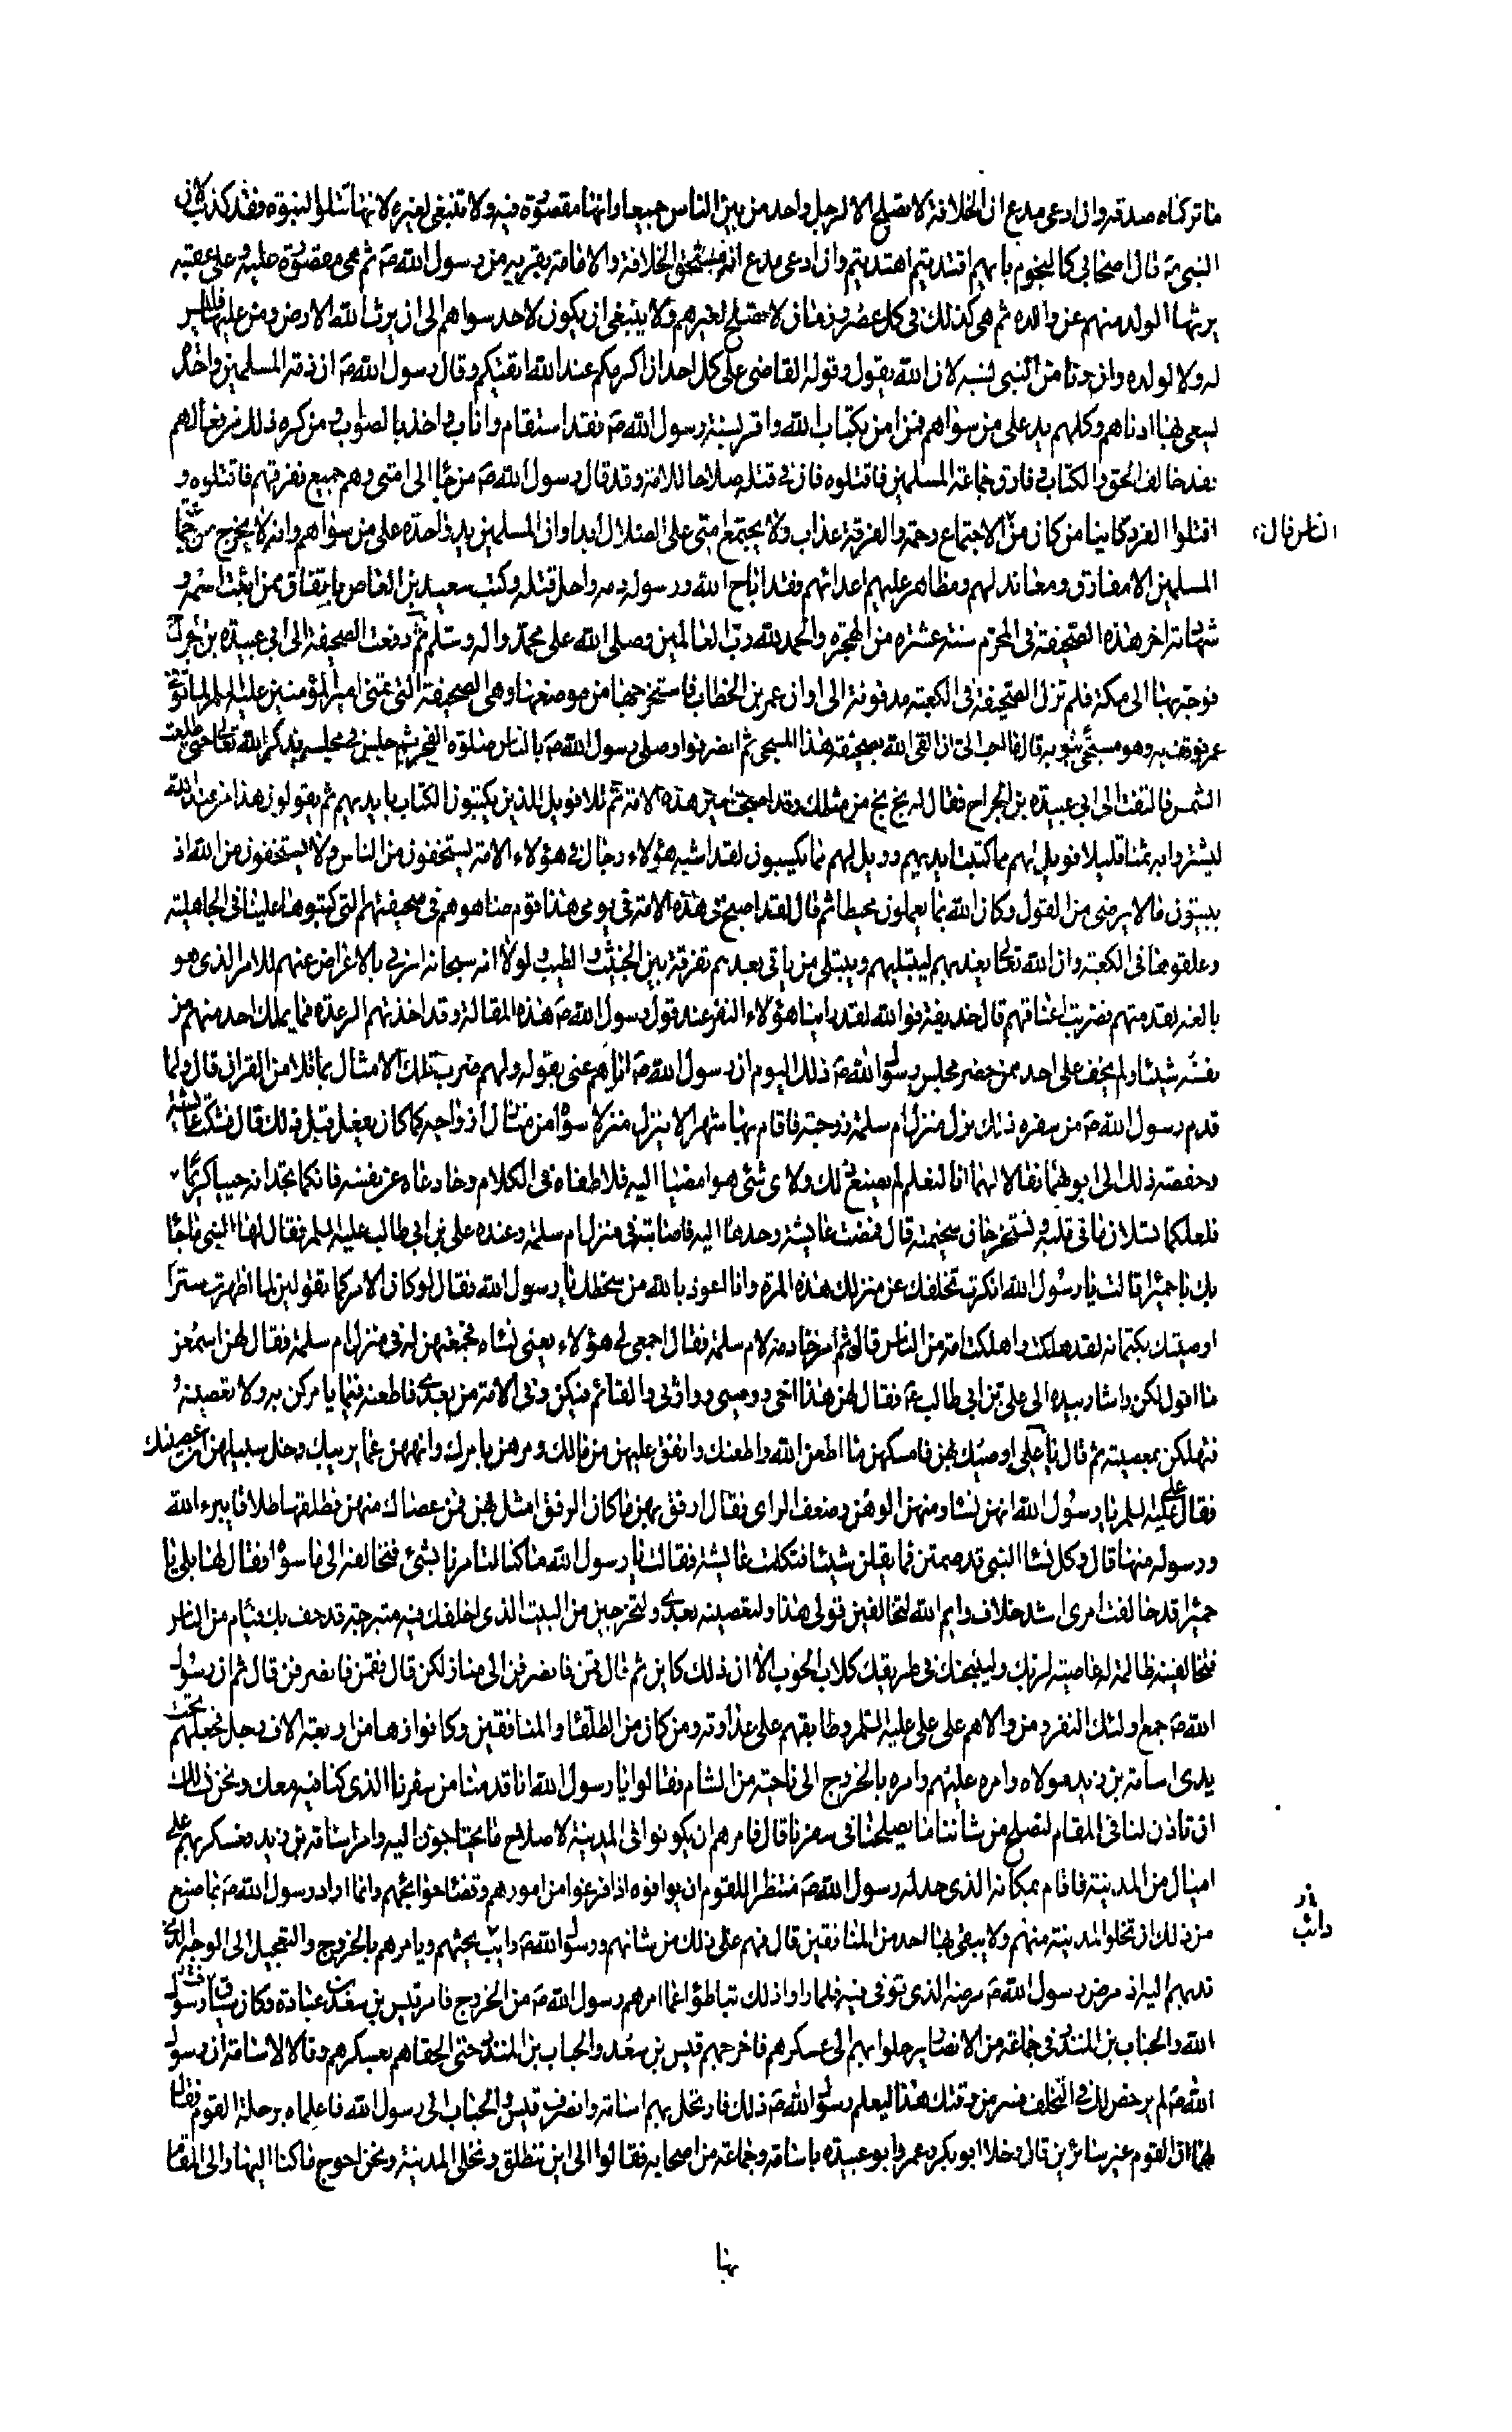 ما تركناه صدقة وان ادعى مدع ان الخلافة لا تصلح الا لرجل واحد من بين الناس جميعا وانها مقصورة فيه ولا تنبغى لغيره لانها تتلوا لنبوة فقد كذب لان
النبي ص قال اصحابي كالنجوم بايهم اقتديتم اهتديتم وان ادعى مدع انه مستحق الخلافة والامامة بقربه من رسول الله ص ثم هى مقصورة عليه وعلى عقبه
يرثها الولد منهم عن والده ثم هى كذلك فى كل عصر وزمان لا تصلح لغيرهم ولا ينبغى ان يكون لاحد سواهم الى ان يرث الله الارض ومن عليها فليس
له ولا لولده وان دنا من النبي نسبه لان الله يقول وقوله القاضى على كل احد ان اكرمكم عند الله اتقيكم وقال رسول الله ص ان ذمة المسلمين واحدة
يسعى بها ادناهم وكلهم يد على من سواهم فمن امن بكتاب الله واقر بسنة رسول الله ص فقد استقام واناب واخذ بالصواب ومن كره ذلك من فعالهم
فقد خالف الحق والكتاب وفارق جماعة المسلمين فاقتلوه فان فى قتله صلاحا للامة وقد قال رسول الله ص من جاء الى امتى وهم جميع ففرقهم فاقتلوه و
اقتلوا الفرد كاينا من كان من الاجتماع رحمة والفرقة عذاب ولا يجتمع امتى على الضلال ابدا وان المسلمين يد واحدة على من سواهم وانه لا يخرج من جماعة
الناس فان
المسلمين الا مفارق ومعاند لهم ومظاهر عليهم اعدائهم فقد اباح الله ورسوله دمه واحل قتله وكتب سعيد بن العاص باتفاق لمن اثبت اسمه و
شهادته اخر هذه الصحيفة فى المحرم سنة عشرة من الهجرة والحمد لله رب العالمين وصلى الله على محمد واله وسلم ثم دفعت الصحيفة الى ابى عبيدة بن الجراح
فوجه بها الى مكة فلم تزل الصحيفة فى الكعبة مدفونة الى اوان عمر بن الخطاب فاستخرجها من موضعها وهى الصحيفة التى تمنى امير المؤمنين عليه السلم لما توفى
عمر فوقف به وهو مسجى بثوبه قال ما احب الى ان القى الله بصحيفة هذا المسجى ثم انصرفوا وصلى رسول الله ص بالناس صلوة الفجر ثم جلس فى مجلسه يذكر الله تعالى حتى طلعت
الشمس فالتفت الى ابى عبيدة بن الجراح فقال له بخ بخ من مثلك وقد اصبحت امين هذه الامة ثم تلا فويل للذين يكتبون الكتاب بايديهم ثم يقولون هذا من عند الله
ليشتروا به ثمنا قليلا فويل لهم مما كتبت ايديهم وويل لهم مما يكسبون لقد اشبه هؤلاء رجال فى هؤلاء الامة يستخفون من الناس ولا يستخفون من الله اذ
يبيتون ما لا يرضى من القول وكان الله بما يعملون محيطا ثم قال لقد اصبح فى هذه الامة فى يومى هذا قوم ضاهوهم فى صحيفتهم التى كتبوها علينا فى الجاهلية
وعلقوها فى الكعبة وان الله تعالى يعذبهم ليبتليهم ويبتلى من ياتى بعدهم تفرقة بين الخبيث والطيب ولولا انه سبحانه امرنى بالاعراض عنهم للامر الذى هو
بالغه لقدمتهم فضربت اعناقهم قال حذيفة فوالله لقد راينا هؤلاء النفر عند قول رسول الله ص هذه المقالة وقد اخذتهم الرعدة فما يملك احد منهم من
نفسه شيئا ولم يخف على احد ممن حضر مجلس رسول الله ص ذلك اليوم ان رسول الله ص اياهم عنى بقوله ولهم ضرب تلك الامثال بما تلا من القران قال ولما
قدم رسول الله ص من سفره ذلك نزل منزل ام سلمة زوجته فاقام بها شهرا لا ينزل منزلا سواه من منازل ازواجه كما كان يفعل قبل ذلك قال فشكت عايشة
وحفصة ذلك الى ابويهما فقالا لهما انا لنعلم لم صنع ذلك ولاى شئ هو امضيا اليه فلاطفاه فى الكلام وخادعاه عن نفسه فانكما تجدانه حييا كريما
فلعلكما تسلان ما فى قلبه وتستخرجان سخيمته قال فمضت عايشة وحدها اليه فاصابته فى منزل ام سلمة وعنده على بن ابى طالب عليه السلم فقال لها النبي ما جاء
بك يا حميرا قالت يا رسول الله انكرت تخلفك عن منزلك هذه المرة وانا اعوذ بالله من سخطك يا رسول الله فقال لو كان الامر كما تقولين لما اظهرت سترا
اوصيتك بكتمانه لقد هلكت واهلكت امة من الناس قال ثم امر خادمة لام سلمة فقال اجمعى لى هؤلاء يعنى نساءه فجمعتهن له فى منزل ام سلمة فقال لهن اسمعن
ما اقول لكن واشار بيده الى على بن ابى طالب ع فقال لهن هذا اخى ووصيى ووارثى والقائم فيكن وفى الامة من بعدى فاطعنه فيما يامركن به ولا تعصينه و
فتهلكن بمعصيته ثم قال يا على اوصيك بهن فامسكهن ما اطعن الله واطعنك وانفق عليهن من مالك ومرهن بامرك وانههن عما يريبك وخل سبيلهن ان عصينك
فقال على عليه السلم يا رسول الله انهن نساء ومنهن الوهن وضعف الراى فقال ارفق بهن ما كان الرفق امثل بهن فمن عصاك منهن فطلقها طلاقا يبرء الله
ورسوله منها قال وكل نساء النبي قد صمتن فما يقلن شيئا فتكلمت عايشة فقالت يا رسول الله ما كنا لتامرنا بشئ فنخالفه الى ما سواه فقال لها بلى يا
حميرا قد خالفت امرى اشد خلاف وايم الله لتخالفين قولى هذا ولتعصينه بعدى ولتخرجين من البيت الذى اخلفك فيه متبرجة قد حف بك فئام من الناس
فتخالفينه ظالمة له عاصية لربك ولتنبحنك فى طريقك كلاب الحوب الا ان ذلك كاين ثم قال قمن فانصرفن الى منازلكن قال فقمن فانصرفن قال ثم ان رسول
الله ص جمع اولئك النفر ومن والاهم على على عليه السلم وطابقهم على عداوته ومن كان من الطلقاء والمنافقين وكانوا زهاء من اربعة الاف رجل فجعلهم تحت
يدى اسامة بن زيد مولاه وامره عليهم وامره بالخروج الى ناحية من الشام فقالوا يا رسول الله انا قدمنا من سفرنا الذى كنا فيه معك ونحن نسالك
ان تاذن لنا فى المقام لنصلح من شاننا ما يصلحنا فى سفرنا قال فامرهم ان يكونوا فى المدينة لاصلاح ما يحتاجون اليه وامر اسامة بن زيد فعسكر بهم على
اميال من المدينة فاقام بمكانه الذى حد له رسول الله ص منتظرا للقوم ان يوافوه اذا فرغوا من امورهم وقضاء حوائجهم وانما اراد رسول الله ص بما صنع
من ذلك ان تخلوا المدينة منهم ولا يبقى بها احد من المنافقين قال فهم على ذلك من شانهم ورسول الله ص دايب يحثهم ويامرهم بالخروج والتعجيل الى الوجه الذى
دائب
ندبهم اليه اذ مرض رسول الله ص مرضه الذى توفى فيه فلما راوا ذلك تباطؤا عما امرهم رسول الله ص من الخروج فامر قيس بن سعد بن عبادة وكان سياف رسول
الله والحباب بن المنذر فى جماعة من الانصار يرحلوا بهم الى عسكرهم فاخرجهم قيس بن سعد والحباب بن المنذر حتى الحقاهم بعسكرهم وقالا لاسامة ان رسول
الله ص لم يرخص لك فى التخلف فسر من وقتك هذا ليعلم رسول الله ص ذلك فارتحل بهم اسامة وانصرف قيس والحباب الى رسول الله فاعلماه برحلة القوم فقال
لهما ان القوم غير سائرين قال وخلا ابو بكر وعمر وابو عبيدة باسامة وجماعة من اصحابه فقالوا الى اين ننطلق ونخلى المدينة ونحن احوج ما كنا اليها والى المقام
بها